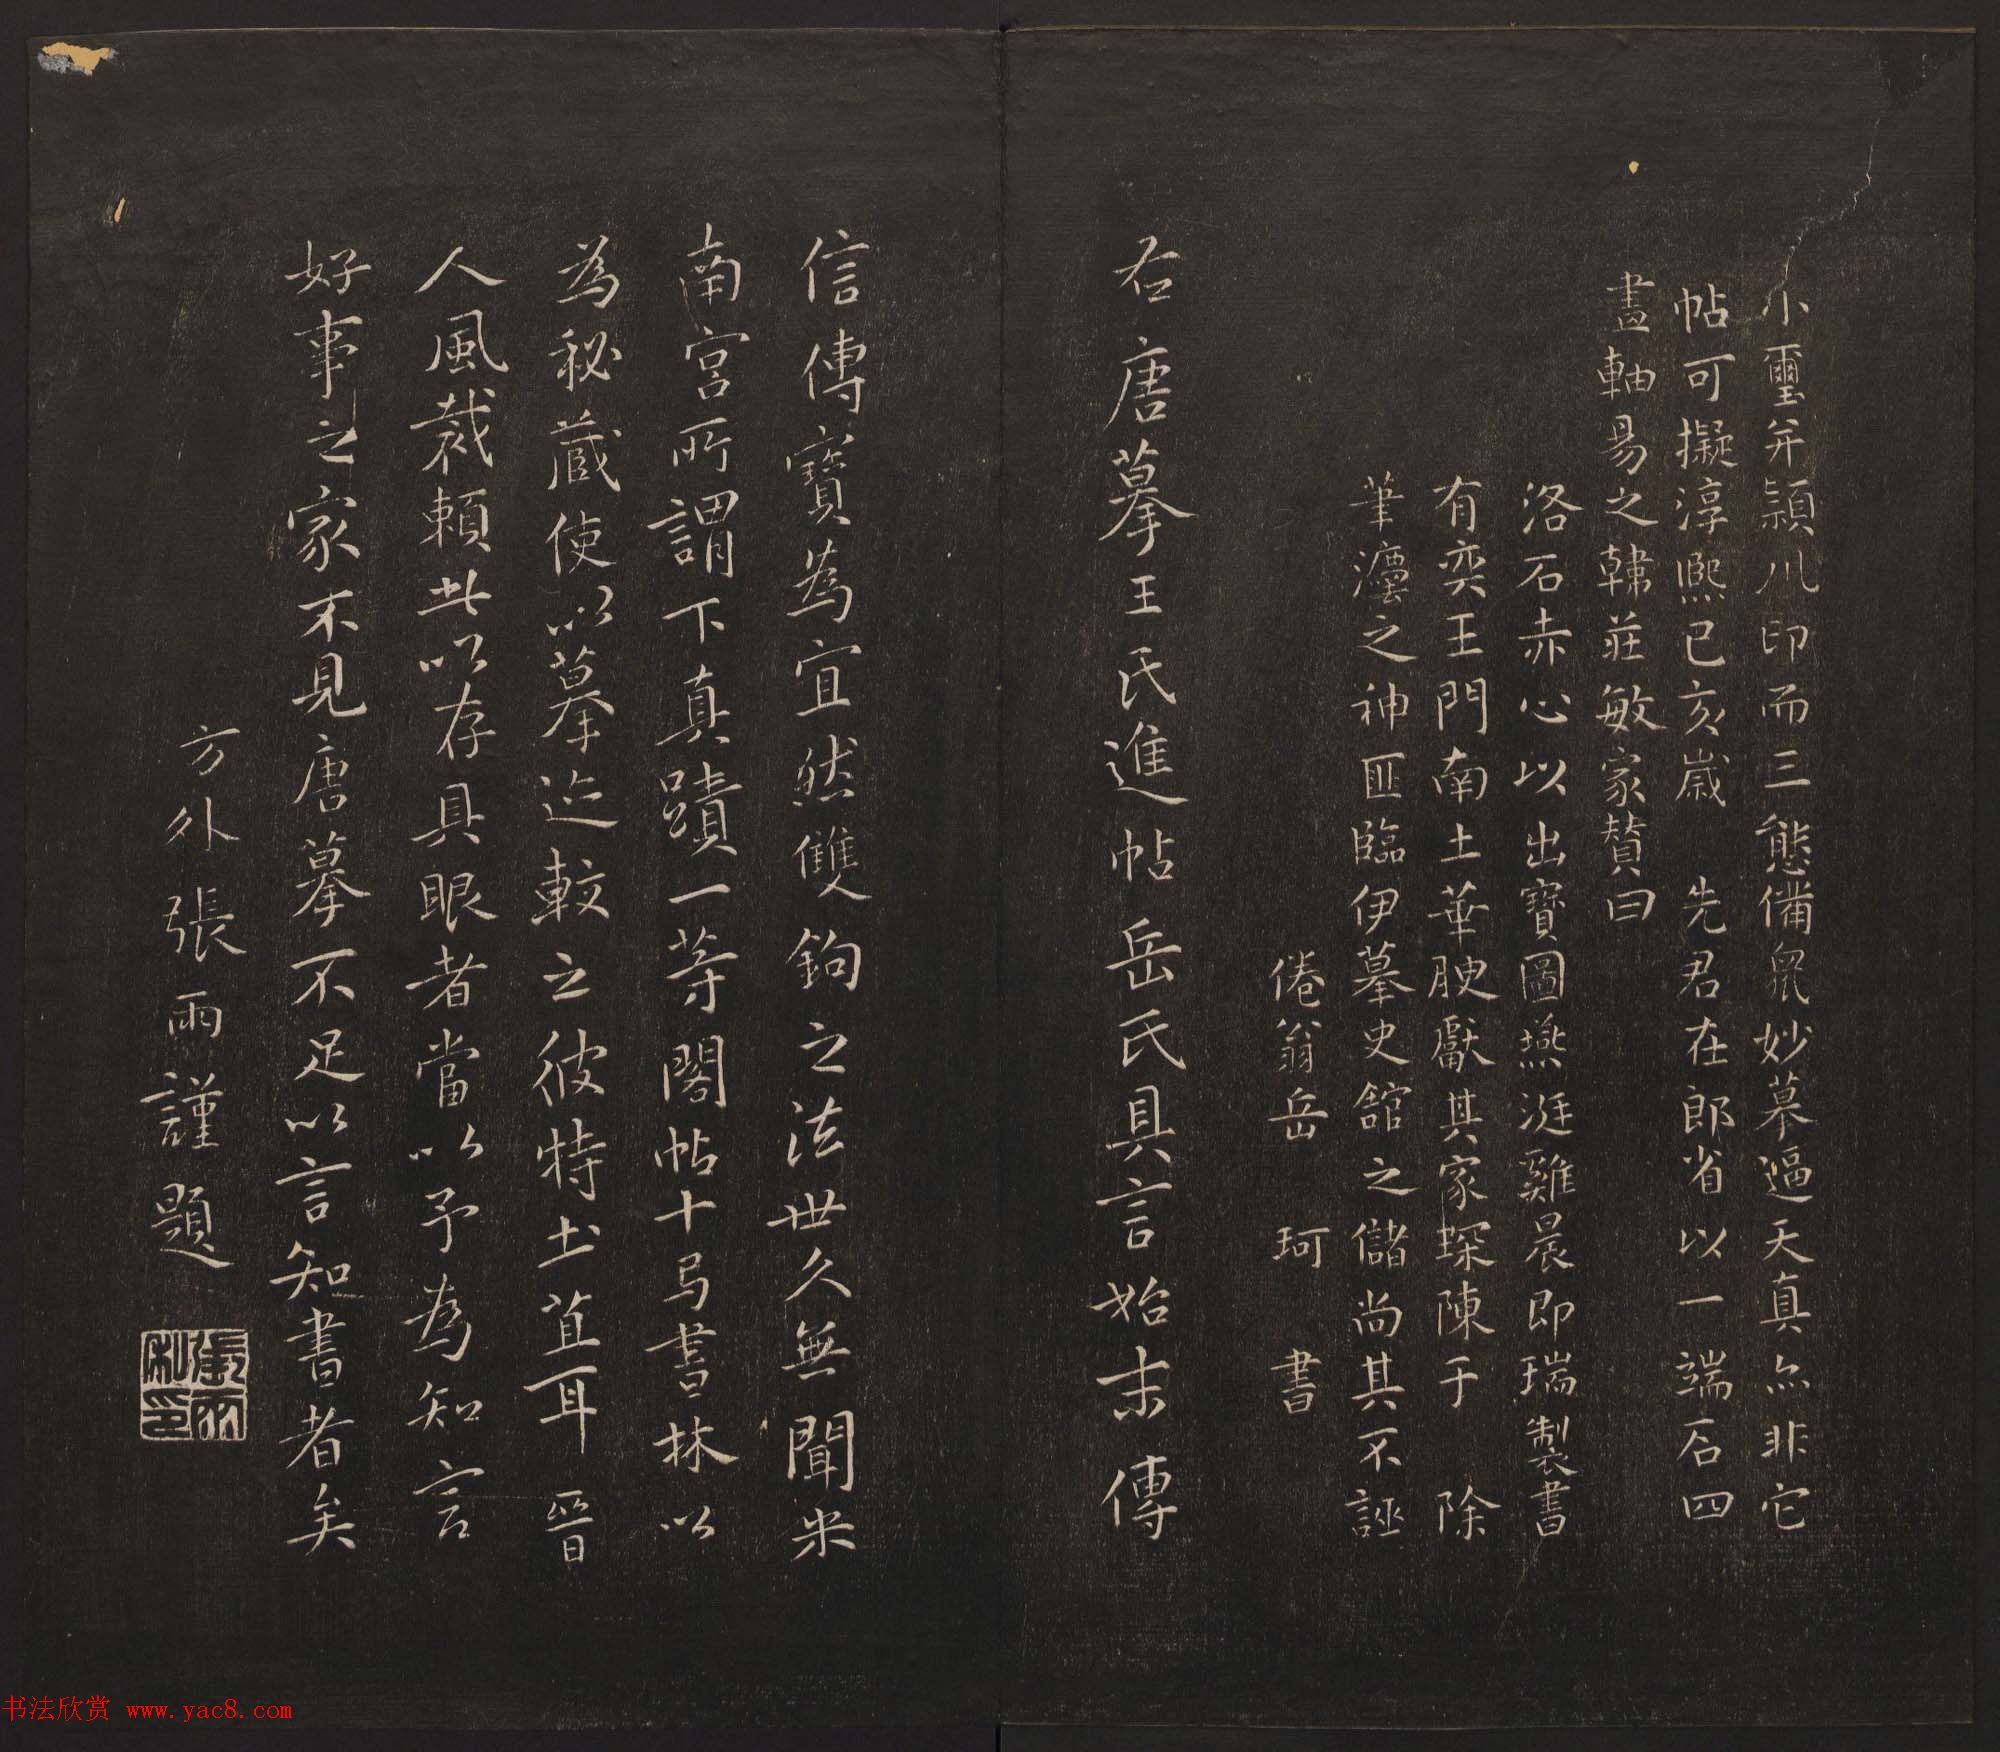 小璽并潁川印而三態備眾妙摹逼天真亦非它
帖可擬淳熙己亥歲先君在郎省以一端石四
畫軸易之韓莊敏家贊曰
洛石赤心以出寶圖燕涎雞晨即瑞製書
有奕王門南土華腴獻其家琛陳于除
筆灋之神匪臨伊摹史館之儲尚其不誣
倦翁岳珂書
右唐摹王氏進帖岳氏具言始末傳
信傳寶為宜然雙鉤之法世久無聞米
南宮所謂下真蹟一等閣帖十弓書林以
為秘藏使以摹迹較之彼特土苴耳晉
人風裁賴此以存具眼者當以予為知言
好事之家不見唐摹不足以言知書者矣
方外張雨謹題
張雨私印
书法欣赏 www.yac8.com